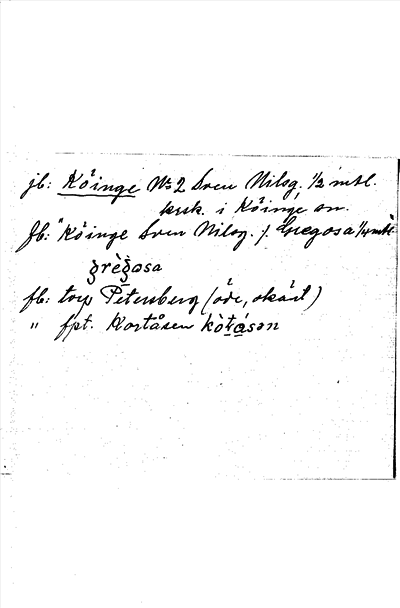 jb: Köinge No 2 Sven Nilsg. 1/2 mtl.
krsk. i Köinge sn.
fb: "Köinge Sven Nilsg. /. Gregosa 1/4 mtl
grègosa
fb: torp Petersberg (öde, okänt)
" fpt. Kortåsen kòtåsan